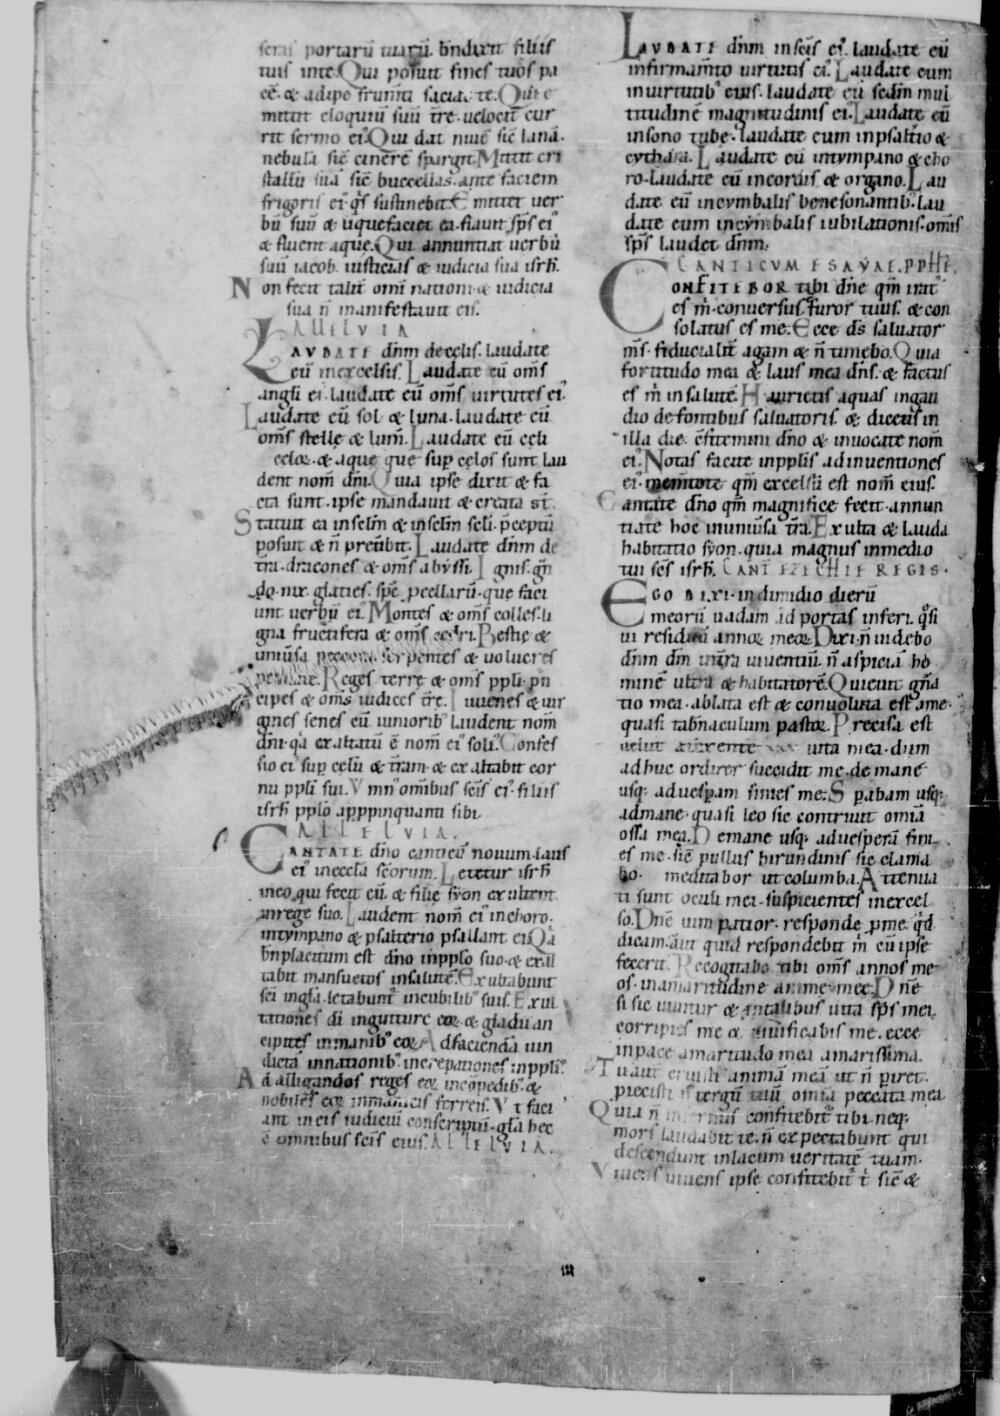 seras portarū tuarū. bn̄dixit filiis
tuis inte. Qui posuit fines tuos pa
cē. & adipe frum̄ti saciat te. Qui e
mittit eloquiū suū tr̄e. velocit̄ cur
rit sermo ei᷒. Qui dat niuē sic̄ lanā.
nebulā sic̄ cinerē spargit. Mittit cri
stallū suā sic̄ buccellas. ante faciem
frigoris ei᷒ q̄s sustinebit. Emittet uer
bū suū & liquefaciet ea. flauit sp̄s ei᷒
& fluent aque. Qui annuntiat uerbū
suū iacob. iusticias & iudicia sua isrl̄.
Non fecit talit̄ om̄i nationi. & iudicia
sua n̄ manifestauit eis.
ALLELVIA
LAVDATE dn̄m decelis. laudate
eū inexcelsis. Laudate eū om̄s
angl̄i ei᷒. laudate eū om̄s uirtutes ei᷒.
Laudate eū sol & luna. laudate eū
om̄s stelle & lum̄. Laudate eū celi
celoꝝ. & aque que sup̄ celos sunt lau
dent nom̄ dn̄i. Quia ipse dixit & fa
cta sunt. ipse mandauit & creata st̄.
Statuit ea insel̄m & insel̄m seli. p̄ceptū
posuit & n̄ pret̄ibit. Laudate dn̄m de
tr̄a. dracones & om̄s abyssi. Ignis. gn̄
do. nix. glacies. sp̄c pcellarū. que faci
unt uerbū ei᷒. Montes & om̄s colles. li
gna fructifera & om̄s cedri. Bestie &
uniūsa pecora. serpentes & uolucres
pennate. Reges terre & om̄s ppl̄i. pn̄
cipes & om̄s iudices tr̄e. Iuuenes & uir
gines senes cū iuniorib᷒ laudent nom̄
dn̄i. q̄a exaltatū ē nom̄ ei᷒ soli᷒. Confes
sio ei᷒ sup̄ celū & tr̄am. & exaltabit cor
nu ppl̄i sui. Ymn᷒ om̄ib᷒ sc̄is ei᷒. filiis
isrl̄ ppl̄o appppinquanti sibi.
ALLELVIA.
CANTATE dn̄o canticū nouum. laus
ei᷒ inecclā sc̄orum. Letetur isrl̄
ineo qui fecit eū. & filie syon exultent
inrege suo. Laudent nom̄ ei᷒ inchoro.
intympano & psalterio psallant ei. Q̄a
bn̄placitum est dn̄o inppl̄o suo. & exal
tabit mansuetos insalutē. Exultabunt
sc̄i inglā. letabunt᷒ incubilib᷒ suis. Exul
tationes dī ingutture eoꝝ. & gladii an
cipites inmanib᷒ eoꝝ. Adfaciendā uin
dictā innationib᷒. increpationes inppl̄i᷒.
Ad alligandos reges eoꝝ incopedib᷒. &
nobiles eoꝝ inmanicis ferreis. Vt faci
ant ineis iudiciū conscriptū. glā hec
ē omnibus sc̄is eius. ALLELVIA.
LAVDATE dn̄m insc̄is ei᷒. laudate eū
infirmam̄to uirtutis ei᷒. Laudate eum
inuirtutib᷒ eius. laudate eū sedm̄ mul
titudinē magnitudinis ei᷒. Laudate eū
insono tube. laudate eum inpsalt̄io &
cythara. Laudate eū intympano & cho
ro. laudate eū incordis & organo. Lau
date eū incymbalis benesonantib᷒. lau
date eum incymbalis iubilationis. om̄is
sp̄s laudet dn̄m.
CANTICVM ESAYAE. PPHE.
CONFITEBOR tibi dn̄e qm̄ irat᷒
es m̄. conuersus furor tuus. & con
solatus es me. Ecce ds̄ saluator
m̄s. fiducialit̄ agam & n̄ timebo. Quia
fortitudo mea & laus mea dn̄s. & factus
es m̄ insalutē. Haurietis aquas ingau
dio defontibus saluatoris. & dicetis in
illa die. c̄fitemini dn̄o & inuocate nom̄
ei᷒. Notas facite inppl̄is adinuentiones
ei᷒. mementote qm̄ excelsū est nom̄ eius.
Cantate dn̄o qm̄ magnifice fecit. annun
tiate hoc inuniūsa tr̄a. Exulta & lauda
habitatio syon. quia magnus inmedio
tui sc̄s isrl̄. CANT. EZECHIE REGIS.
EGO DIXI. indimidio dierū
meorū uadam ad portas inferi. q̄si
ui residuū annoꝝ meoꝝ. Dixi n̄ uidebo
dn̄m dm̄ intr̄a uiuentiū. n̄ aspiciā ho
minē ultra & habitatorē. Quieuit gn̄a
tio mea. ablata est & conuoluta est a me.
quasi tabn̄aculum pastoꝝ. Precisa est
uelut a texente uita mea. dum
adhuc ordirer succidit me. de mane
usq; aduesperam finies me. Sperabam usq;
admane. quasi leo sic contriuit omīa
ossa mea. Demane usq; aduesperā fini
es me. sic̄ pullus hirundinis sic clama
bo. meditabor ut columba. Attenua
ti sunt oculi mei. suspicientes inexcel
so. Dn̄e uim patior. responde p̄me. q̄d
dicam. aut̄ quid respondebit m̄ cū ipse
fecerit. Recogitabo tibi om̄s annos me
os. inamaritudine anime mee. Dn̄e
si sic uiuitur & intalibus uita sp̄s mei
corripies me & uiuificabis me. ecce
inpace amaritudo mea amarissima.
Tu aut̄ eruisti animā meā ut n̄ piret.
piecisti p̄ tergū tuū omīa peccata mea.
Quia n̄ infernus confitebit᷒ tibi. neq;
mors laudabit te. n̄ expectabunt qui
descendunt inlacum ueritatē tuam.
Viuens uiuens ipse confitebit᷒ t̄. sic̄ &